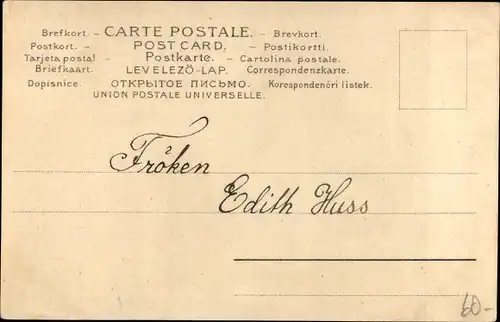 Brefkort. – CARTE POSTALE. – Brevkort.
Postkort. – POST CARD. – Postikortti.
Tarjeta postal. – Postkarte. – Cartolina postale.
Briefkaart. LEVELEZÖ-LAP. Correspondenzkarte.
Dopisnice. ОТКРЫТОЕ ПИСЬМО. Korespondenční lístek.
UNION POSTALE UNIVERSELLE.
Fröken
Edith Huss
60-